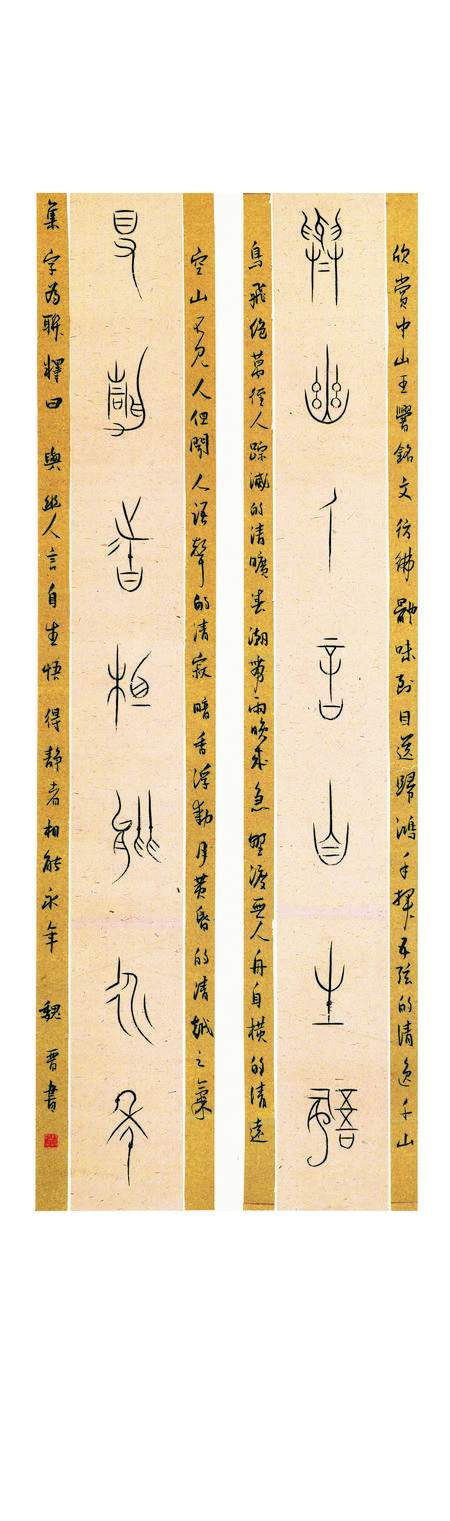 欣赏中山王譽銘文彷彿體味到目送歸鴻手揮五弦的清逸千山
與幽人言自生悟
鳥飛绝萬徑人踪滅的清曠春潮带雨晚來急野渡無人舟自橫的清遠
空山不见人但聞人语聲的清寂暗香浮動月黄昏的清越之氣
得靜者相能永年
集字为聯釋曰與幽人言自生悟得靜者相能永年魏晋書